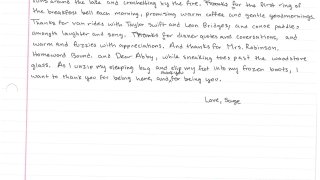 runs around the lake and crocheting by the fire. Thanks for the first ring of
the breakfast bell each morning, promising warm coffee and gentle goodmornings.
Thanks for van rides with Taylor Swift and Leon Bridges, and canoe paddles
amongst laughter and song. Thanks for dinner quotes and conversations, and
warm and fuzzies with appreciations. And thanks for Mrs. Robinson,
Homeward Bound, and Dear Abby, while sneaking toes past the woodstove
glass. As I unzip my sleeping bag and slip my feet into my frozen boots, I
want to thank you for being here, and for being you.
Love, Sage